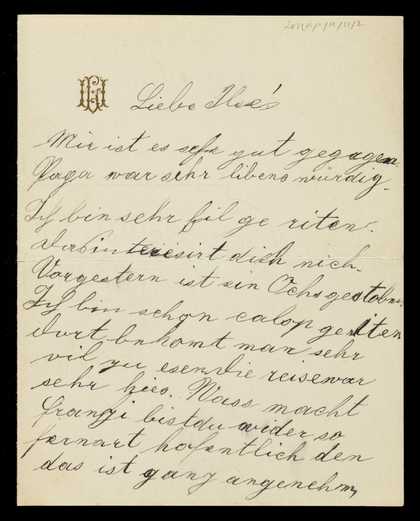 Liebe Ilse's
Mir ist es sehr gut gegagen
Paga war sehr libens würdig.
Ich bin sehr fil ge riten.
das interesirt dich nich.
Vorgestern ist ein Ochs gestoben.
Ich bin schon calop geriten
dort bekomt man sehr
vil zu esen die reise war
sehr hies. Wass macht
frangi bist du wider so
fernart hofentlich den
das ist ganz angenehm,